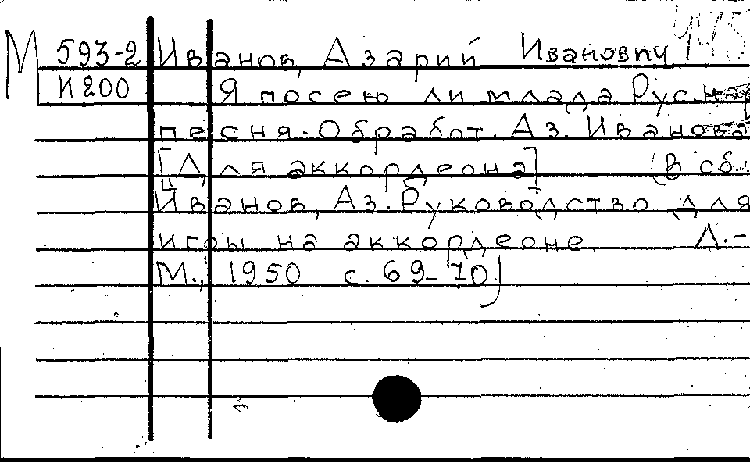 М 593-2 Иванов, Азарий Иванович
К 200 Я посею ли млада Рус. нар.
песня. Обработ. Аз. Иванова
[Для аккордеона] (В сб.:
Иванов, Аз. Руководство для
игры на аккордеоне Л.-
М., 1950 с. 69-70)